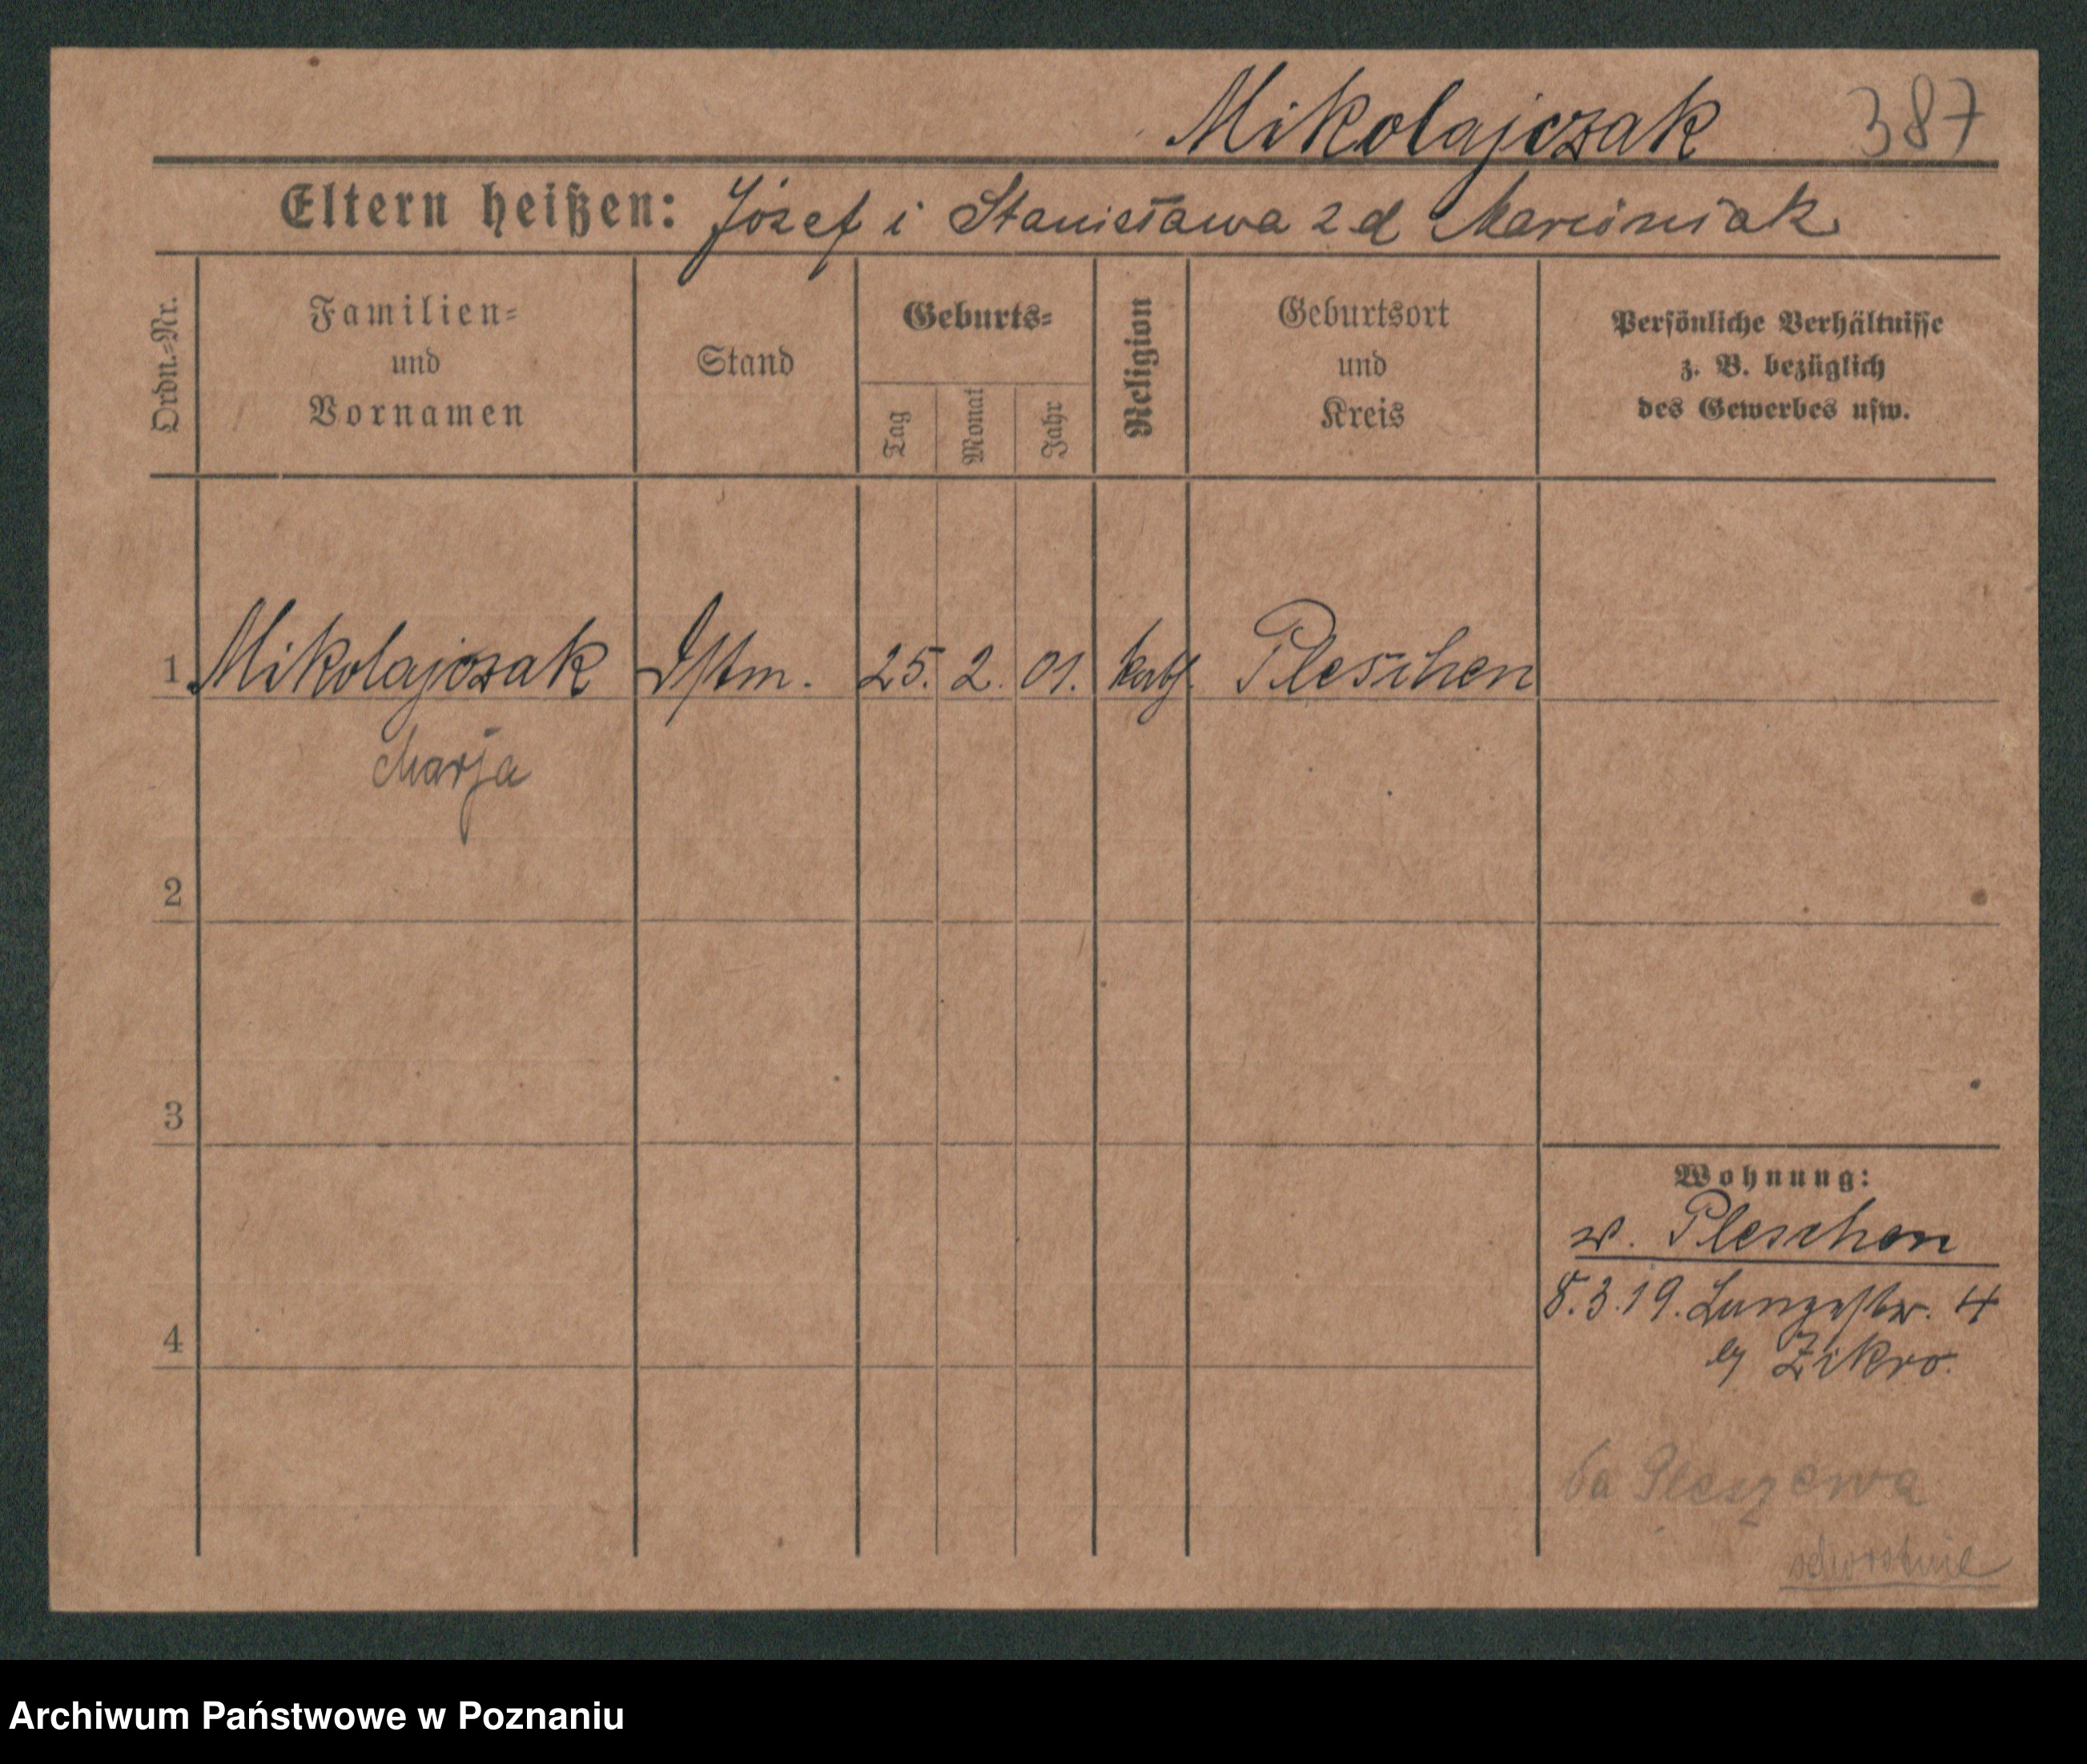 Mikolajczak 387
Eltern heißen: Józef i Stanisława z d Marciniak
Ordn.-Nr.
Familien-
und
Vornamen
Stand
Geburts-
Tag
Monat
Jahr
Religion
Geburtsort
und
Kreis
Persönliche Verhältnisse
z. B. bezüglich
des Gewerbes usw.
1 Mikolajczak Dstm. 25. 2. 01. kath. Pleschen
Marja
2
3
4
Wohnung:
w. Pleschen
8.3.19. Langestr. 4
Pleszewa
Archiwum Państwowe w Poznaniu